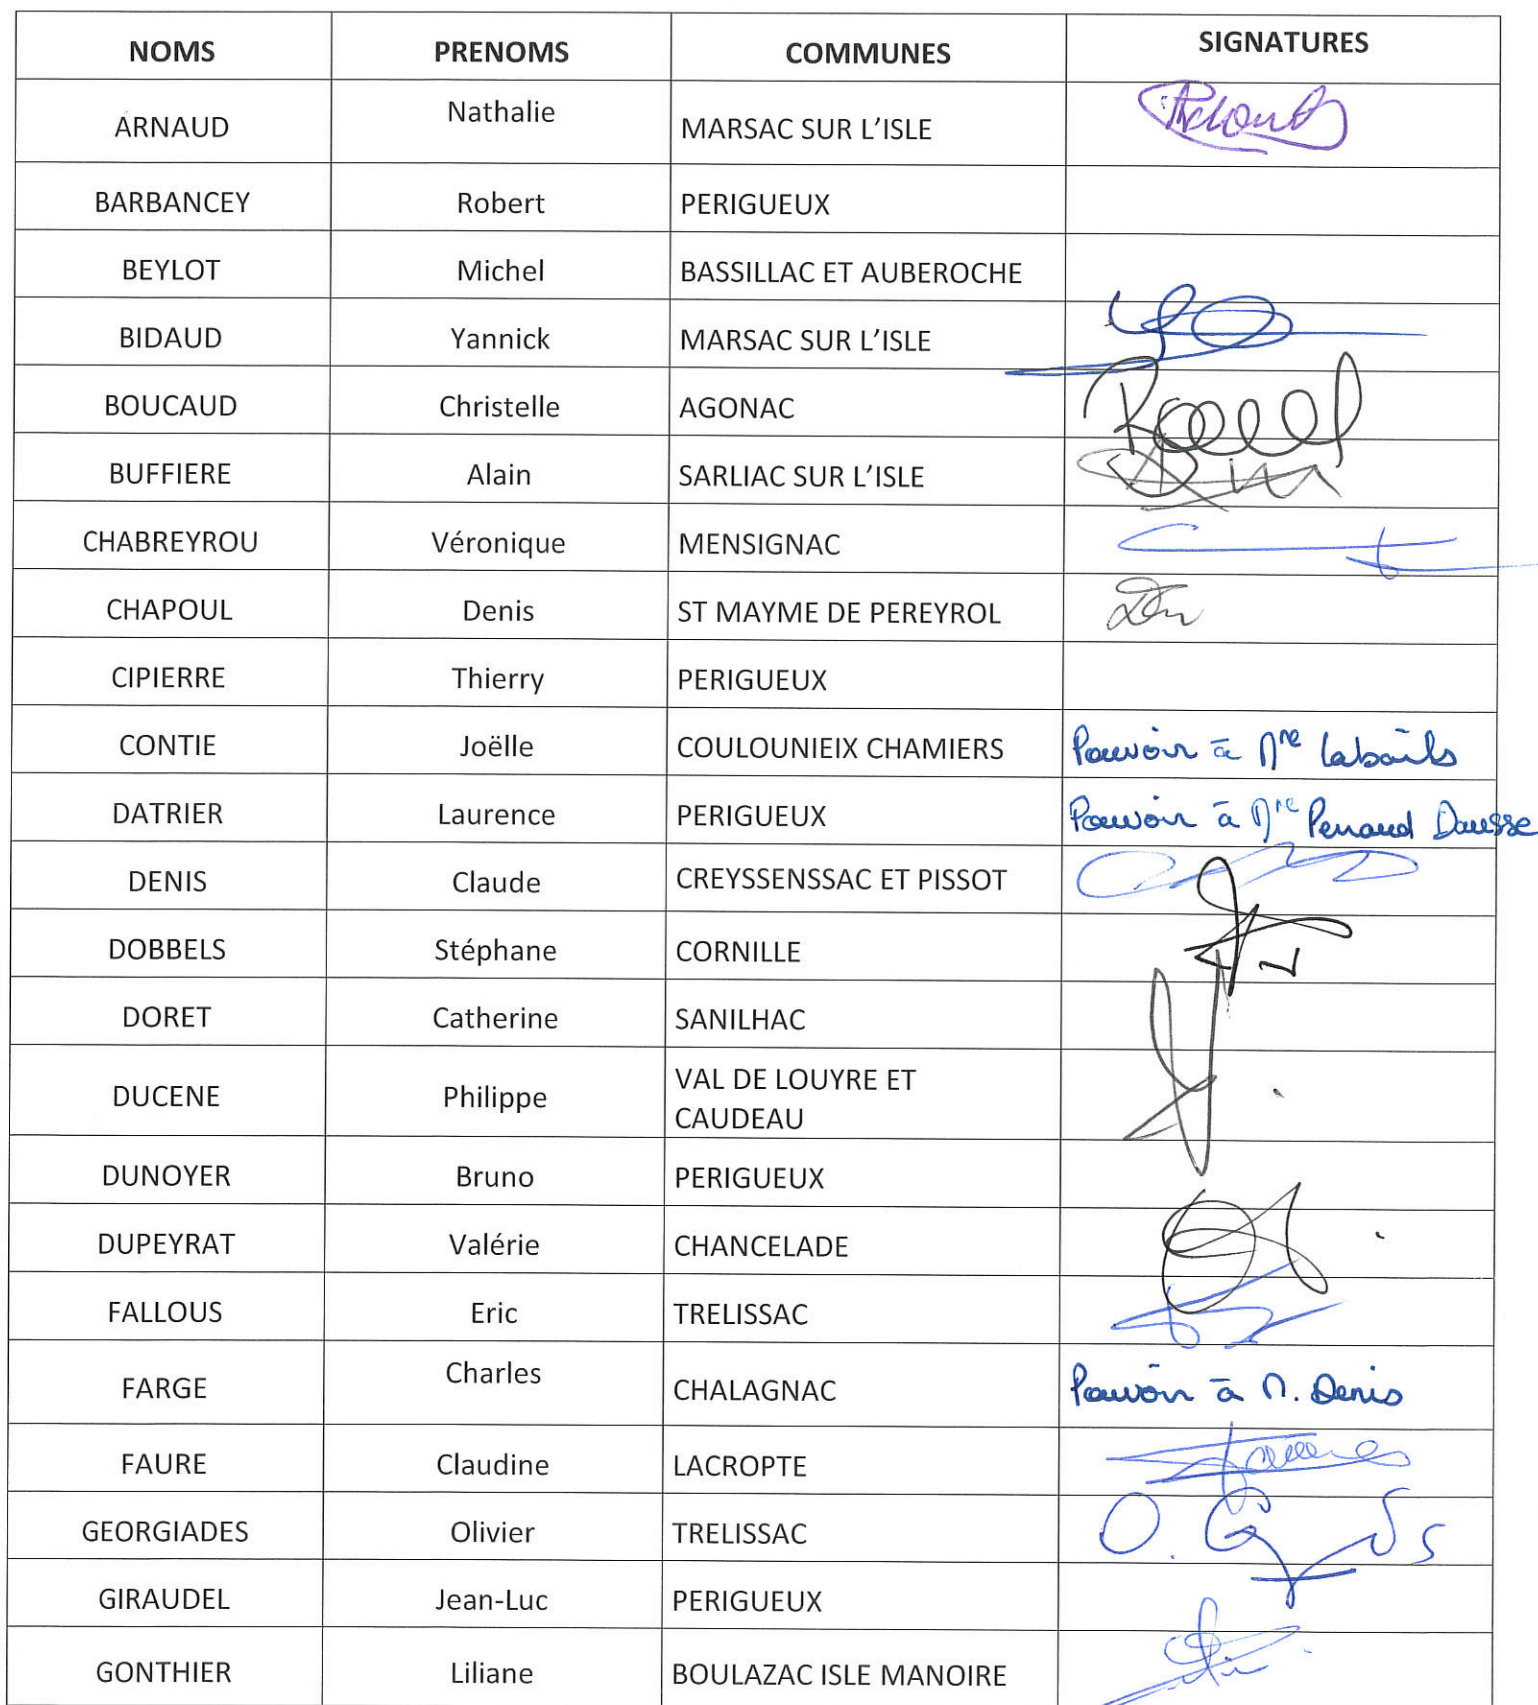 NOMS PRENOMS COMMUNES SIGNATURES
ARNAUD Nathalie MARSAC SUR L'ISLE
BARBANCEY Robert PERIGUEUX
BEYLOT Michel BASSILLAC ET AUBEROCHE
BIDAUD Yannick MARSAC SUR L'ISLE
BOUCAUD Christelle AGONAC
BUFFIERE Alain SARLIAC SUR L'ISLE
CHABREYROU Véronique MENSIGNAC
CHAPOUL Denis ST MAYME DE PEREYROL
CIPIERRE Thierry PERIGUEUX
CONTIE Joëlle COULOUNIEIX CHAMIERS Pouvoir à Mme Labails
DATRIER Laurence PERIGUEUX Pouvoir à Mme
DENIS Claude CREYSSENSSAC ET PISSOT
DOBBELS Stéphane CORNILLE
DORET Catherine SANILHAC
DUCENE Philippe VAL DE LOUYRE ET
CAUDEAU
DUNOYER Bruno PERIGUEUX
DUPEYRAT Valérie CHANCELADE
FALLOUS Eric TRELISSAC
FARGE Charles CHALAGNAC Pouvoir à M. Denis
FAURE Claudine LACROPTE
GEORGIADES Olivier TRELISSAC
GIRAUDEL Jean-Luc PERIGUEUX
GONTHIER Liliane BOULAZAC ISLE MANOIRE